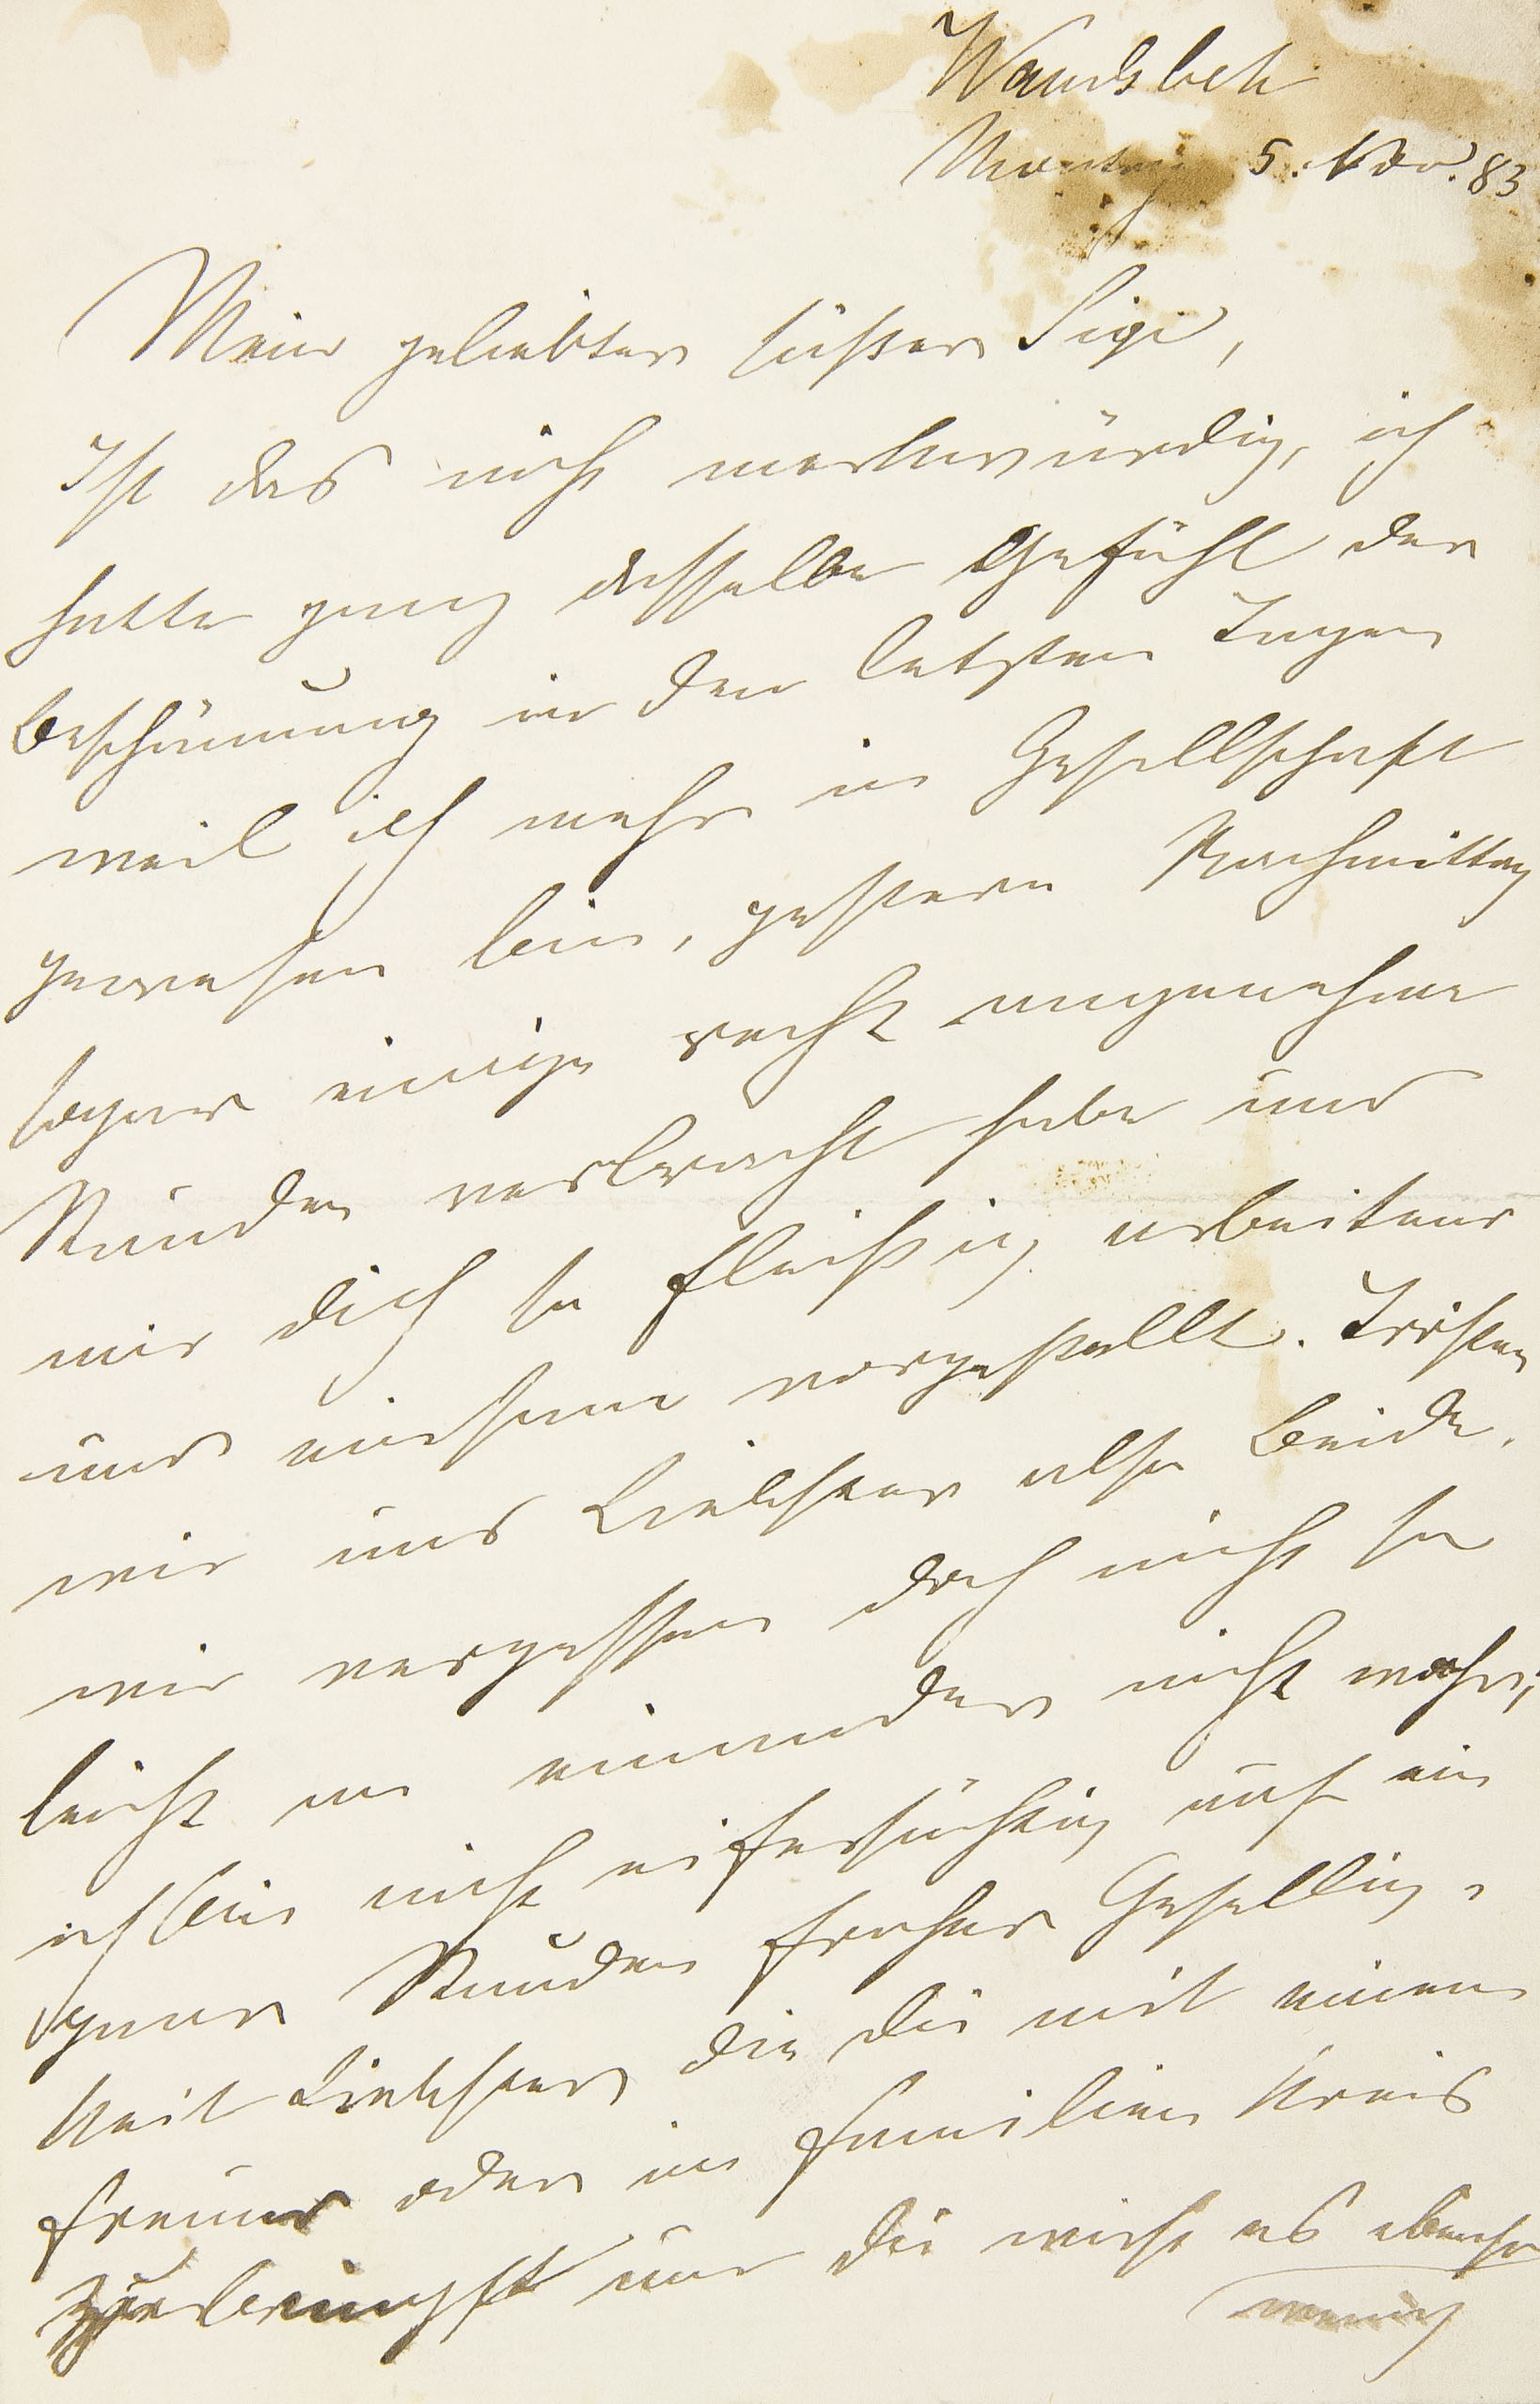 Wandsbek
Montag 5. Nov. 83
Mein geliebter süßer Sigi,
Ist das nicht merkwürdig, ich
hatte ganz dasselbe Gefühl der
Beschämung in den letzten Tagen
weil ich mehr in Gesellschaft
gewesen bin, gestern Nachmittag
sogar einige recht angenehme
Stunden verbracht habe und
mir dich so fleißig arbeitend
und einsam vorgestellt. Trösten
wir uns Liebster also Beide,
wir vergessen doch nicht so
leicht an einander nicht wahr,
ich bin nicht eifersüchtig auf ein
paar Stunden froher Gesellig-
keit Liebster, die Du mit einem
Freund oder im Familien Kreis
zubringst und Du wirst es ebenso
wenig